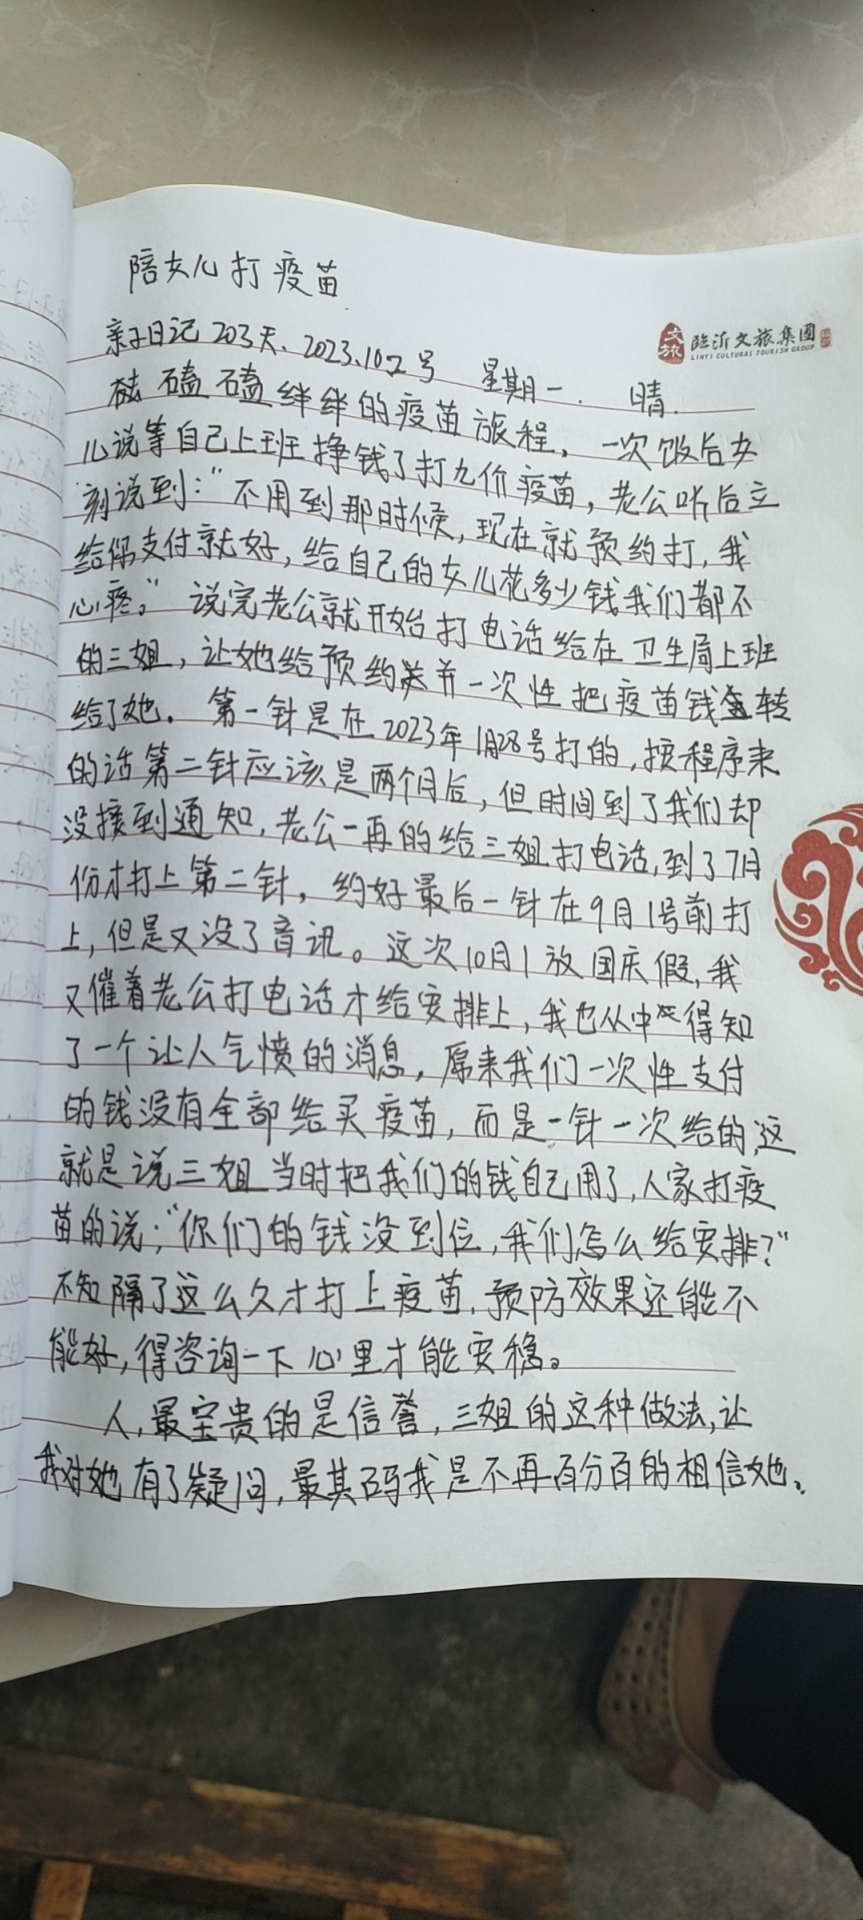 陪女儿打疫苗
亲子日记203天、2023.10.2号 星期一. 晴.
文旅 临沂文旅集团
LINYI CULTURAL TOURISM GROUP
磕磕绊绊的疫苗旅程，一次饭后女
儿说等自己上班挣钱了打九价疫苗，老公听后立
刻说到：“不用到那时候，现在就预约打，我
给你支付就好，给自己的女儿花多少钱我们都不
心疼。”说完老公就开始打电话给在卫生局上班
的三姐，让她给预约并一次性把疫苗钱转
给了她。第一针是在2023年1月28号打的，按程序来
的话第二针应该是两个月后，但时间到了我们却
没接到通知，老公一再的给三姐打电话，到了7月
份才打上第二针，约好最后一针在9月1号前打
上，但是又没了音讯。这次10月1放国庆假，我
又催着老公打电话才给安排上，我也从中得知
了一个让人气愤的消息，原来我们一次性支付
的钱没有全部给买疫苗，而是一针一次给的，这
就是说三姐当时把我们的钱自己用了，人家打疫
苗的说：“你们的钱没到位，我们怎么给安排？”
不知隔了这么久才打上疫苗，预防效果还能不
能好，得咨询一下心里才能安稳。
人，最宝贵的是信誉，三姐的这种做法，让
我对她有了疑问，最其码我是不再百分百的相信她。